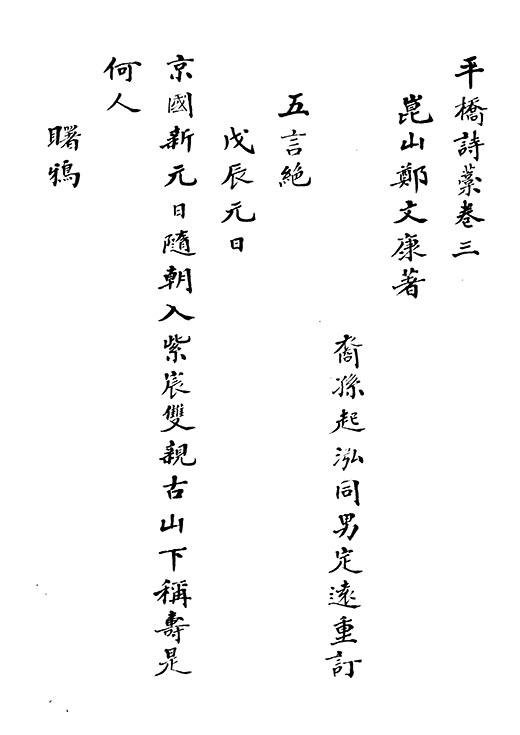 平橋詩藁卷三
崑山鄭文康著
裔孫起泓同男定遠重訂
五言絶
戊辰元日
京國新元日隨朝入紫宸雙親古山下稱壽是
何人
曙鴉